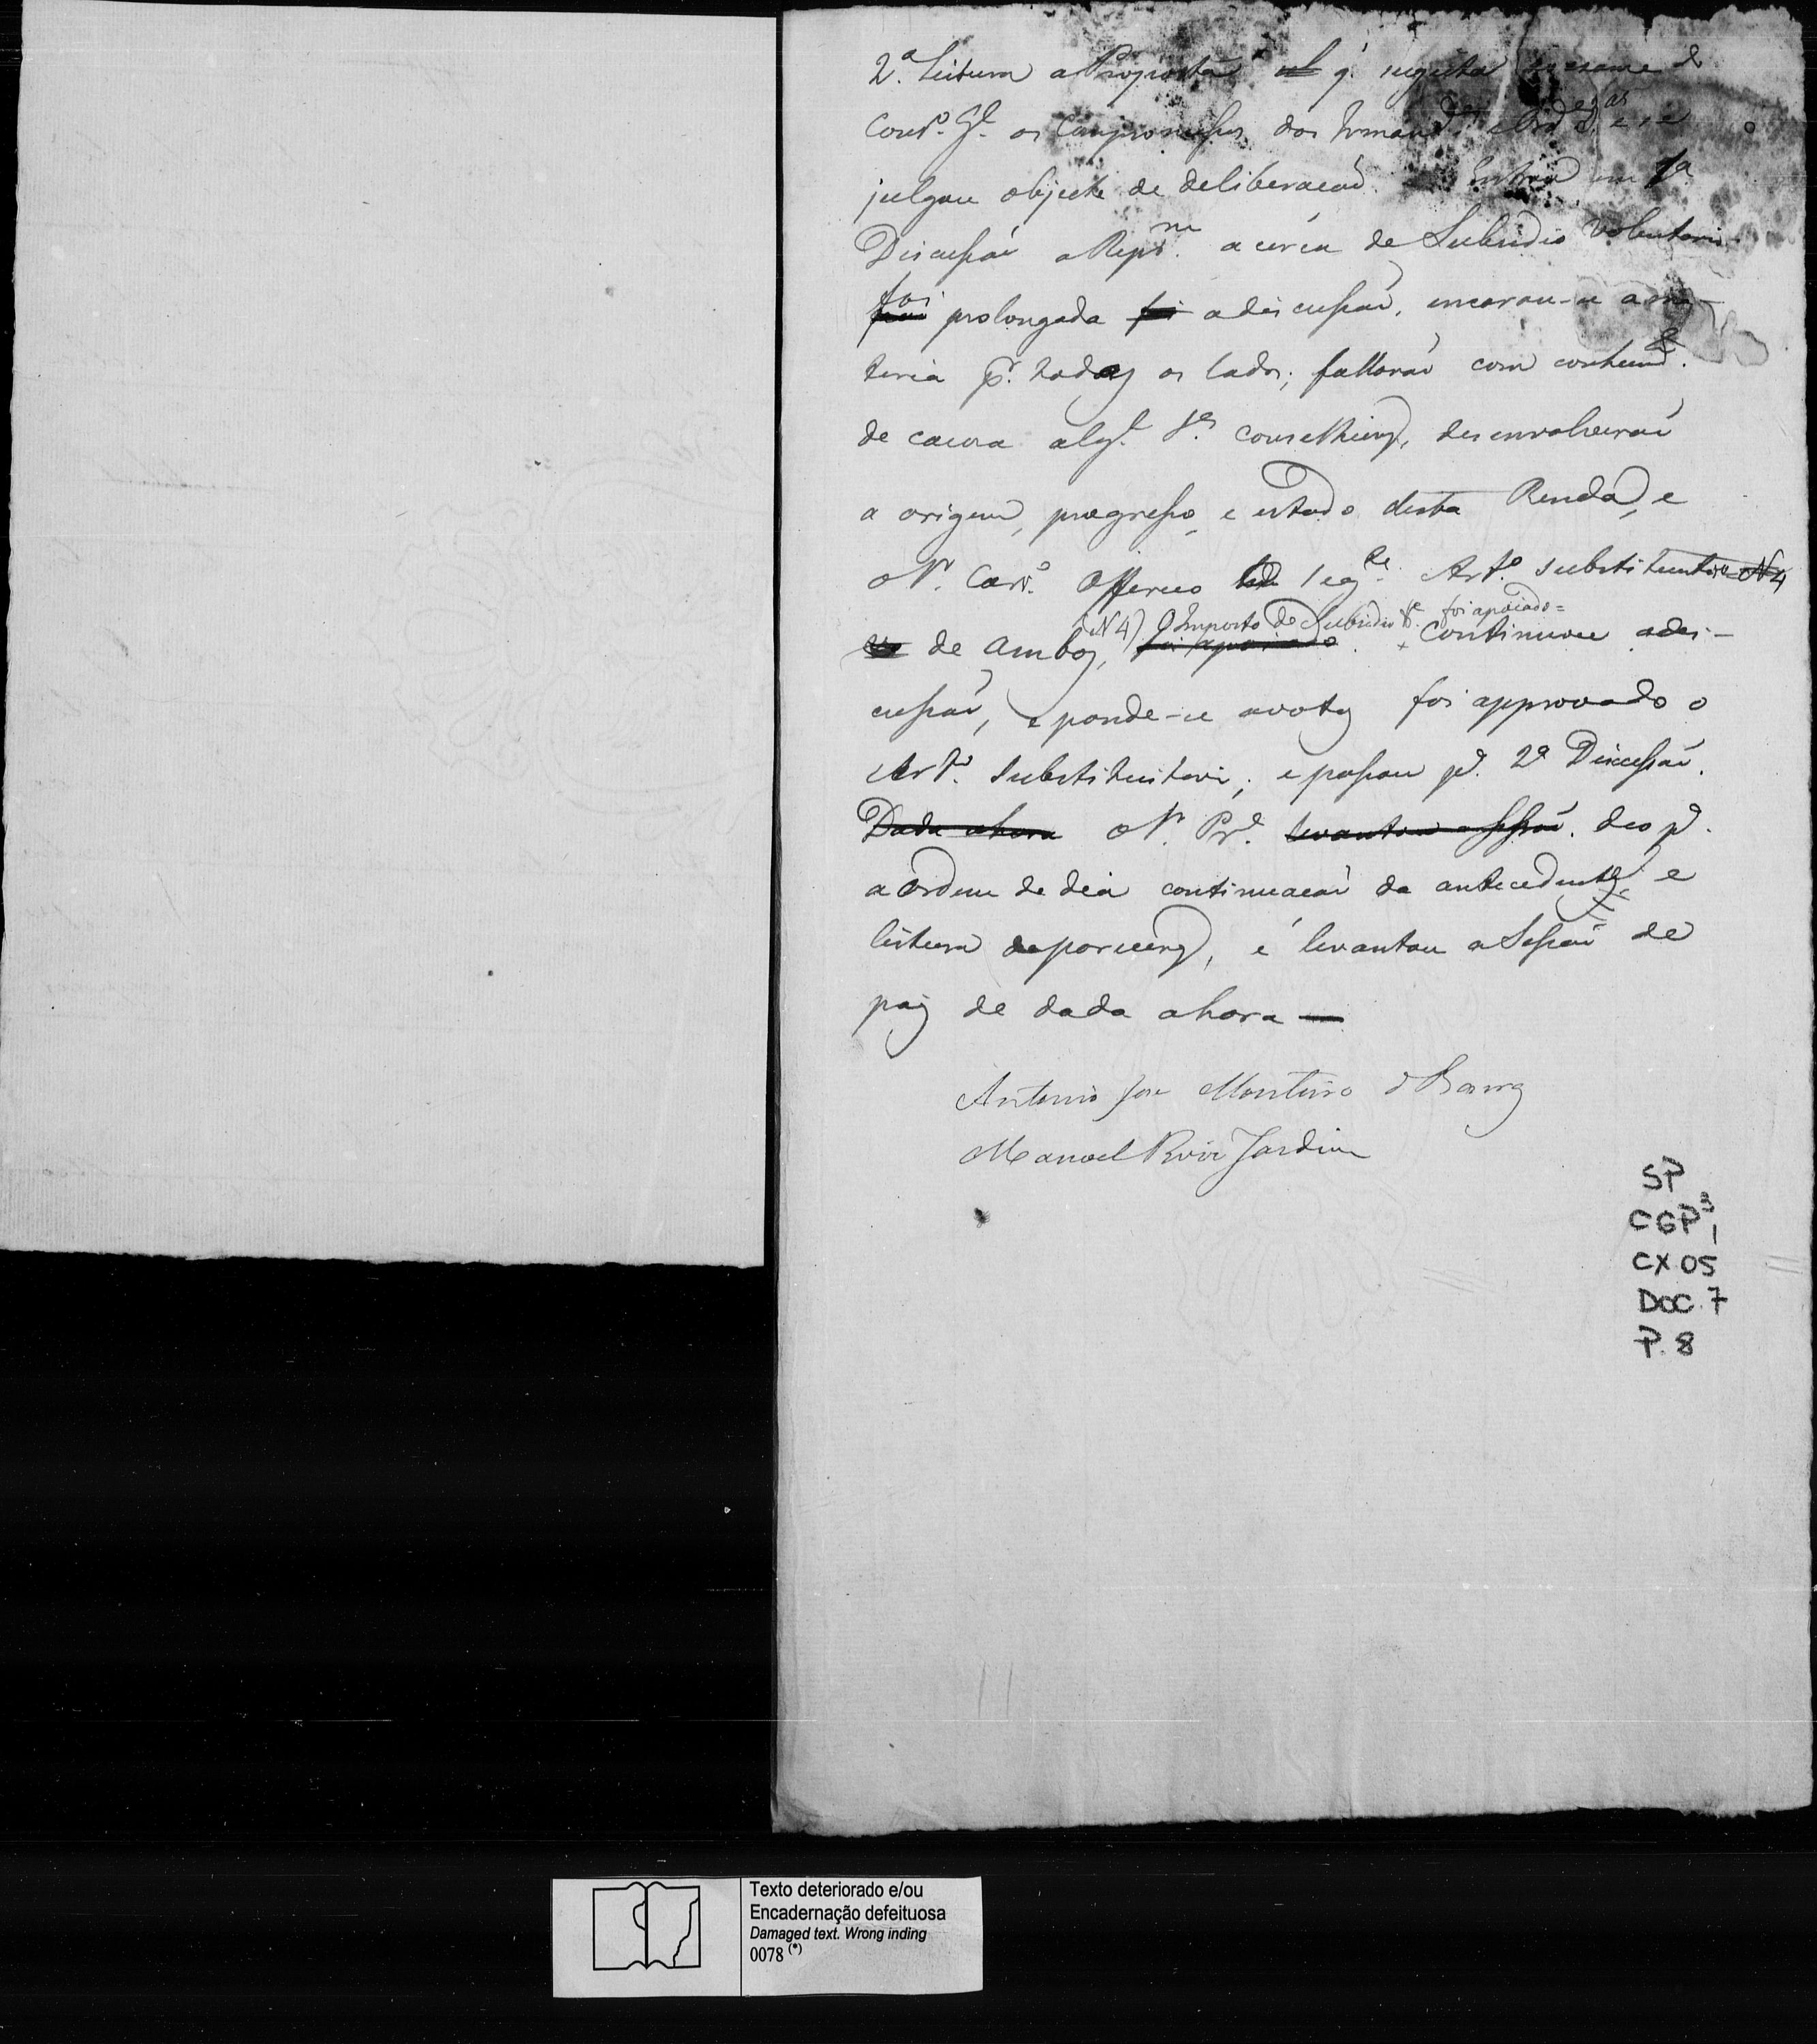 2.ª Leitura a Proposta q. sugeita exame do
Cons.º G.l os Compromissos das Irmand.es e
julgou objecto de deliberaçaõ. Entrou em 1ª
Discussaõ a Repr. acerca do Subsidio Voluntario
foi prolongada a discussaõ, encarou-se a ma-
teria p.r todos os lados; fallaraõ com conhecim.
de causa alg.s S.res conselheiros, desenvolveraõ
a origem, progresso, e estado desta Renda, e
o Sr. Car.º Offereceo seg.te Art.º substitutivo N4
(N4) O Imposto do Subsidio V.e foi apoiado=
de ambos, foi apoiado. + Continuou a dis-
cussaõ, e pondo-se a votos foi approvado o
Art.º Substitutivo; e passou p.ª 2ª Discussaõ.
Dada a hora o Sr. Pr.e levantou a Sessaõ. deo p.ª
a Ordem do dia continuaçaõ da antecedente, e
leitura de pareceres, e levantou a Sessaõ de
pois de dada a hora —
Antonio José Monteiro d Barros
Manoel Roiz Jardim
SP
CGP³1
CX 05
DOC. 7
P. 8
Texto deteriorado e/ou
Encadernação defeituosa
Damaged text. Wrong inding
0078 (*)